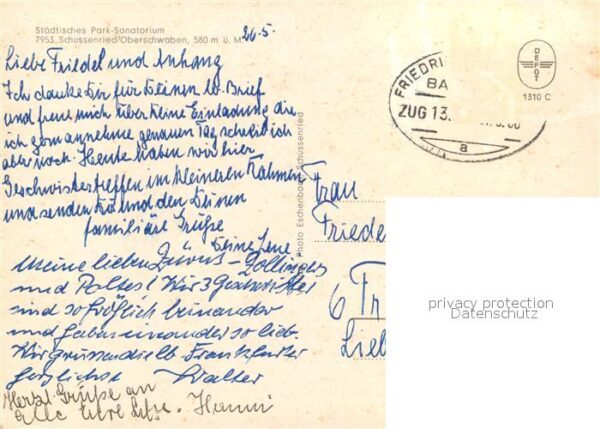 Städtisches Park-Sanatorium
7953 Schussenried/Oberschwaben, 580 m ü. M.
26.5.
Liebe Friedel und Anhang
Ich danke Dir für Deinen lb. Brief
und freue mich über Deine Einladung die
ich gern annehme genauen Tag schreib ich
aber noch. Heute haben wir hier
Geschwistertreffen im kleineren Rahmen
und senden Dir und den Deinen
familiäre Grüße
Deine Lene
Meine lieben
und 3 Geschwister
sind so fröhlich beinander
und haben einander so lieb.
Wir grüssen die lb. Frankfurter
herzlichst Walter
Herzl. Grüße an
alle Eure Hanni
Photo Eschenbach Schussenried
FRIEDRI
BA
ZUG 13.
a
DEFOT
1310 C
Frau
Friede
6 Fr
Lie
privacy protection
Datenschutz